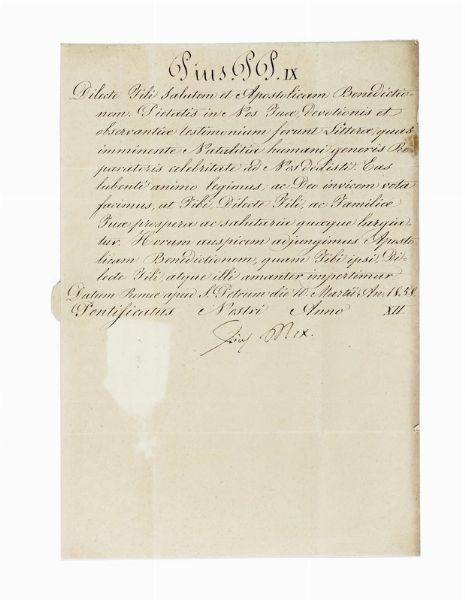 Pius PP. IX
Dilecte Fili salutem et Apostolicam Benedictio-
nem. Pietatis in Nos Tuæ Devotionis et
observantiæ testimonium ferunt Litteræ, quas
imminente Natalitiæ humani generis Re-
paratoris celebritate ad Nos dedisti. Eas
lubenti animo legimus, ac Deo invicem vota
facimus, ut Tibi, Dilecte Fili, ac Familiæ
Tuæ prospera ac salutaria quæque largia-
tur. Horum auspicem adjungimus Aposto-
licam Benedictionem, quam Tibi ipsi Di-
lecte Fili, atque illi amanter impertimur
Datum Romæ apud S. Petrum die 10. Martii An. 1858.
Pontificatus Nostri Anno XII.
Pius PP. IX.